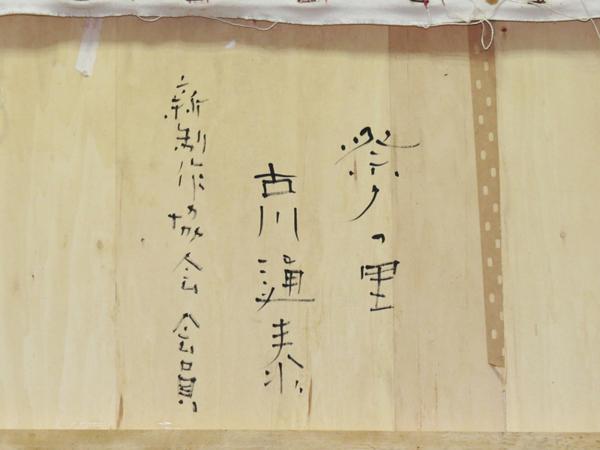 祭りの里
古川通泰
新制作協会会員